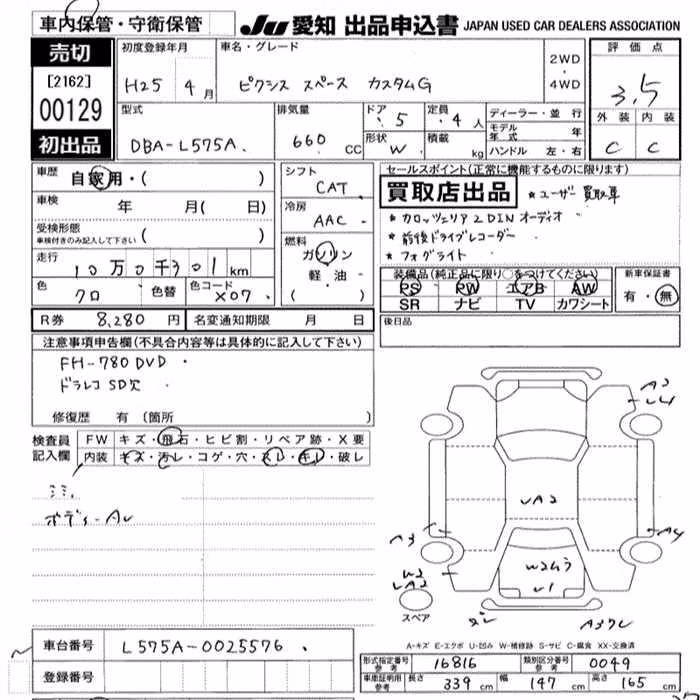 車内保管・守衛保管
JU 愛知 出品申込書 JAPAN USED CAR DEALERS ASSOCIATION
売切
[2162]
00129
初出品
初度登録年月 車名・グレード
H25 4月 ピクシス スペース カスタムG
2WD
・
4WD
評価点
3.5
外装 内装
C C
型式 排気量 ドア 定員
DBA-L575A 660 CC 5 4人
形状 W 積載 kg
ディーラー・並行
モデル年式 年
ハンドル 左・右
車歴 自家用・( )
車検 年 月( 日)
受検形態
車検付きのみ記入して下さい ( )
走行 10万0千301km
色 クロ 色替 色コード X07
シフト CAT
冷房 AAC
燃料
ガソリン
軽油
( )
セールスポイント(正常に機能するものに限ります)
買取店出品 *ユーザー買取車
*カロッツェリア2DINオーディオ
*前後ドライブレコーダー
*フォグライト
装備品(純正品に限り○をつけてください)
PS PW エアB AW
SR ナビ TV カワシート
新車保証書
有・無
R券 8,280円 名変通知期限 月 日
後日品
注意事項申告欄(不具合内容等は具体的に記入して下さい)
FH-780DVD
ドラレコSD欠
修復歴 有 〔箇所 〕
検査員
記入欄
FW キズ・飛石・ヒビ割・リペア跡・X要
内装 キズ・汚レ・コゲ・穴・スレ・キレ・破レ
ボディーAU
A3
UA2
A3
A4
W2
UA2
W2ムラ
U1
スペア
A-キズ E-エクボ U-凹み W-補修跡 S-サビ C-腐食 XX-交換済
車台番号 L575A-0025576
登録番号
形式指定番号 参考 16816 類別区分番号 参考 0049
車庫証明用 参考 長さ 339cm 幅 147cm 高さ 165cm